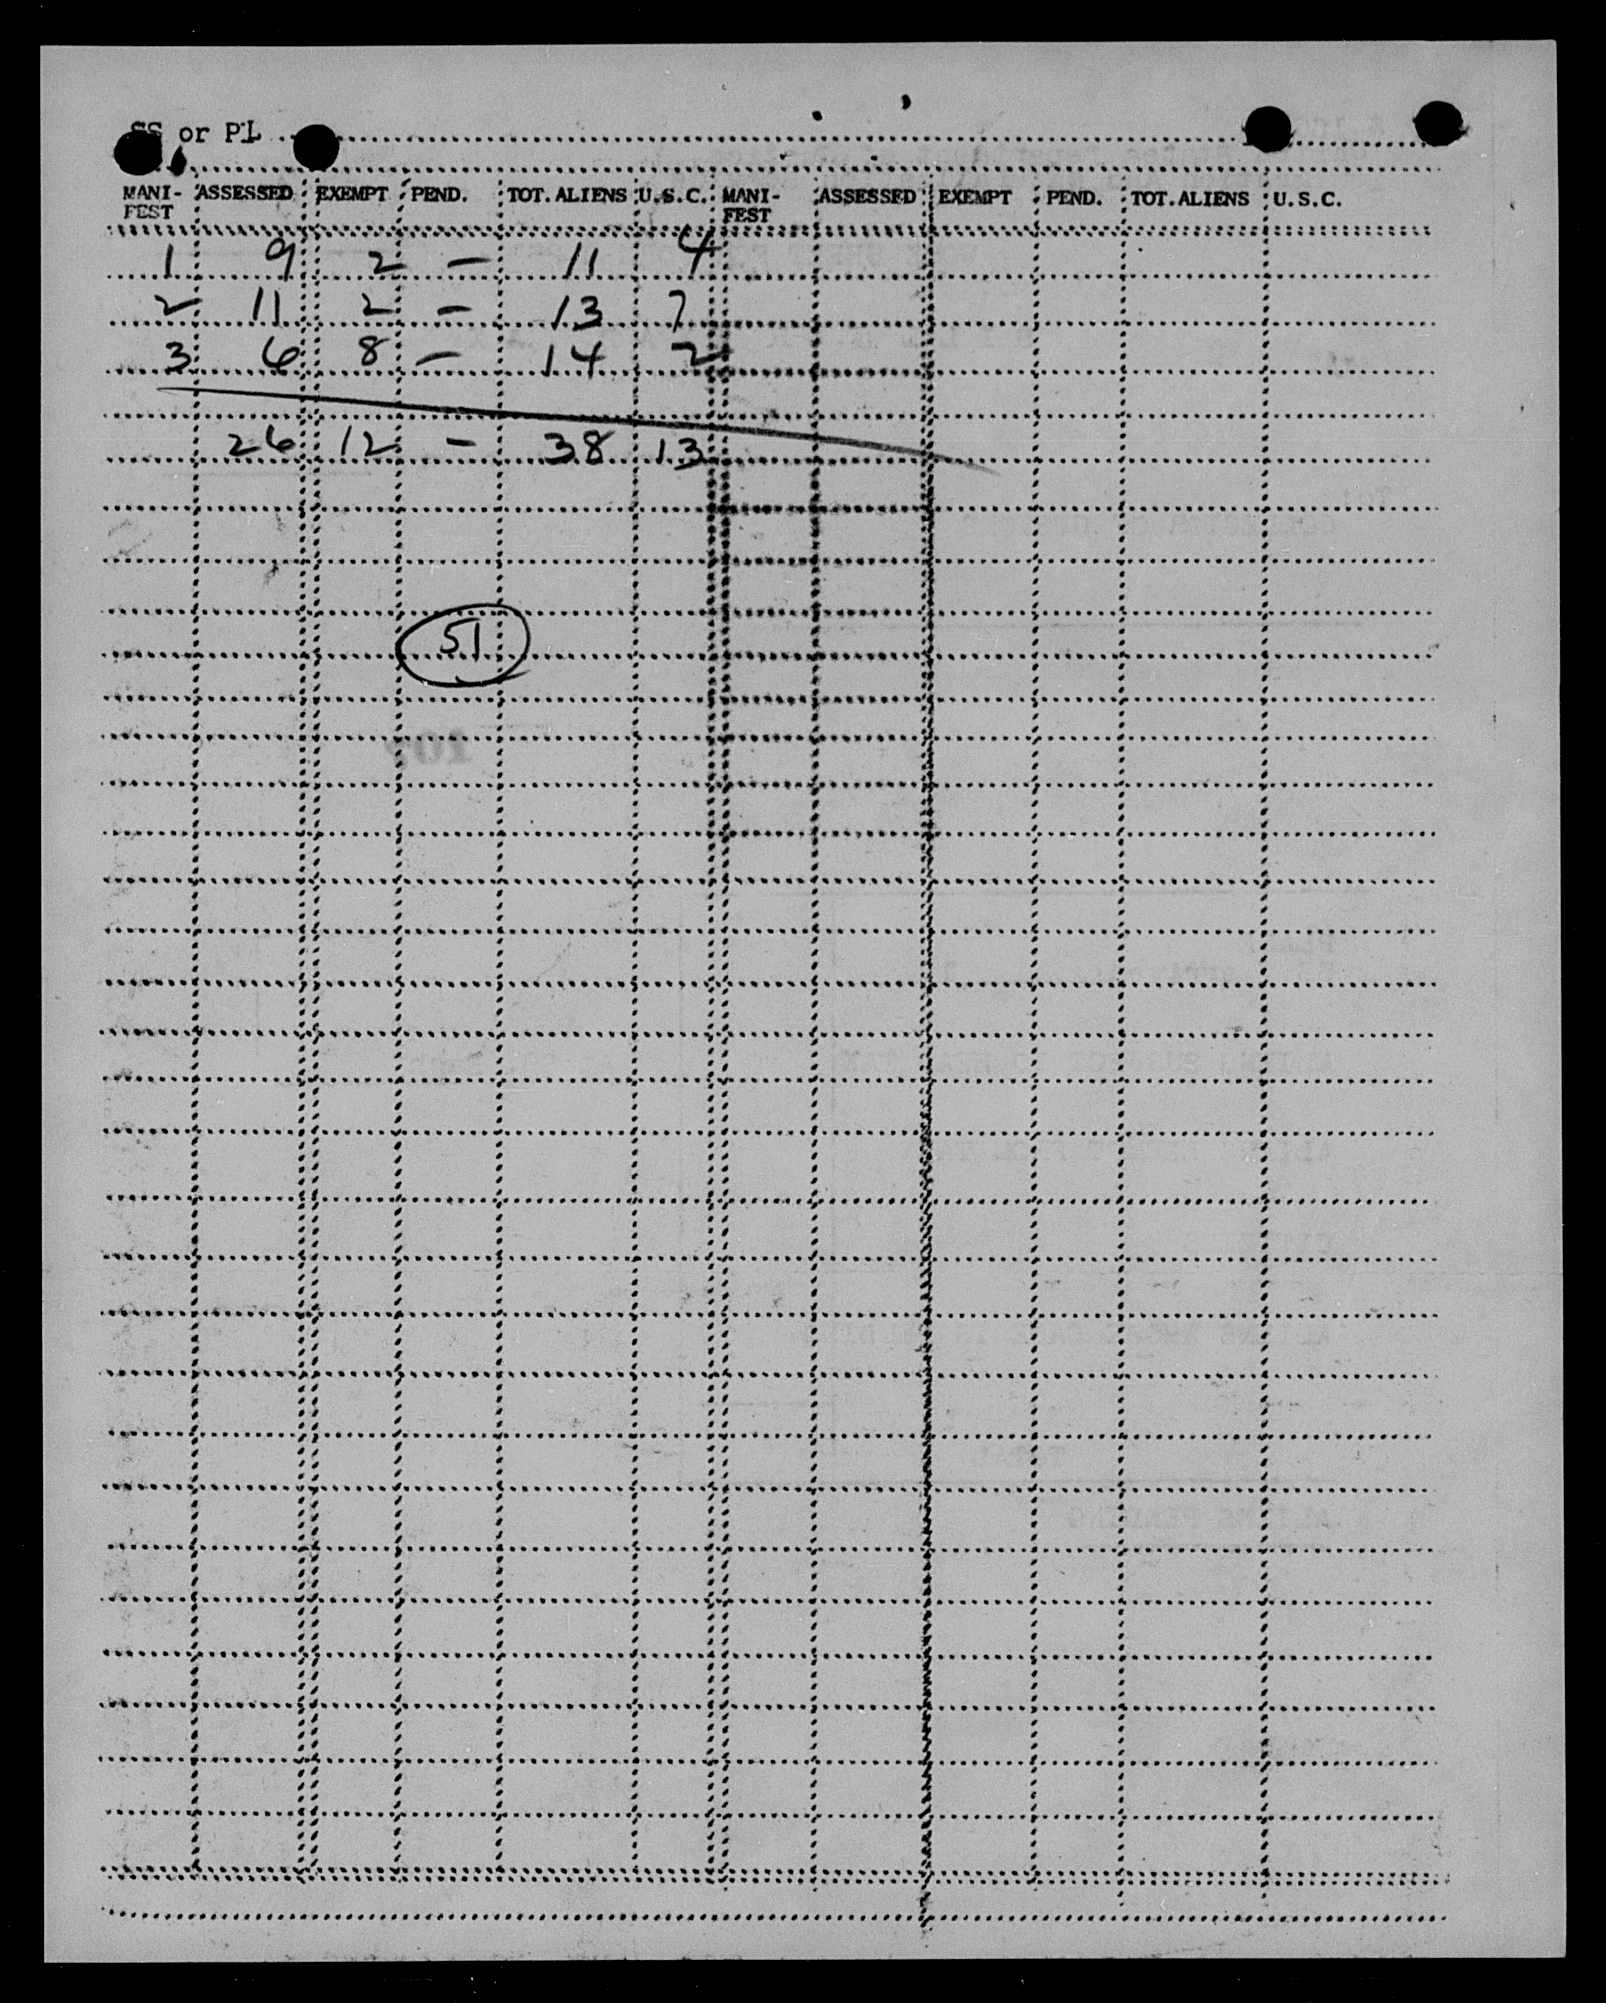 SS or PL
MANI- ASSESSED EXEMPT PEND. TOT. ALIENS U.S.C. MANI- ASSESSED EXEMPT PEND. TOT. ALIENS U.S.C.
FEST FEST
1 9 2 — 11 4
2 11 2 — 13 7
3 6 8 — 14 2
26 12 — 38 13
51